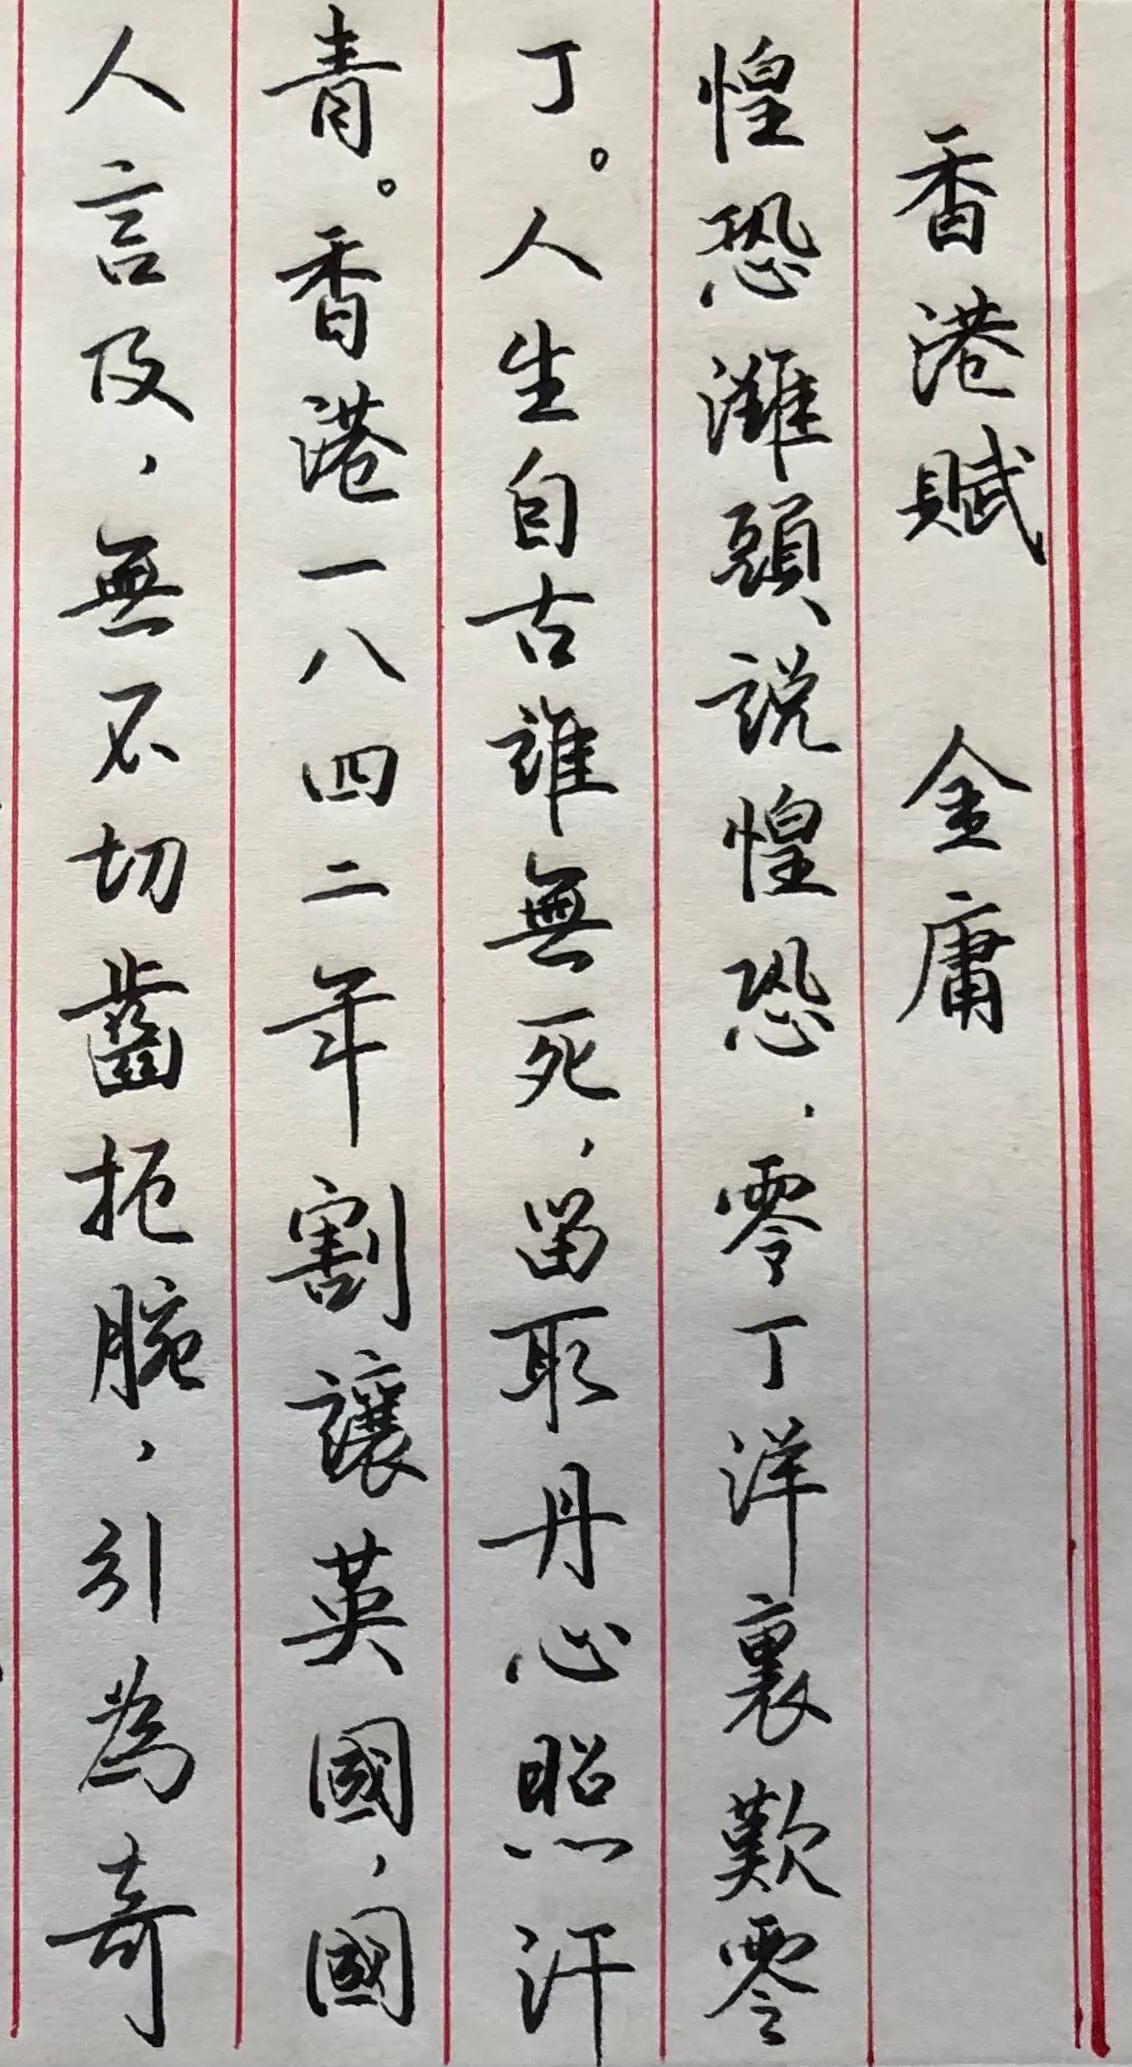 香港賦 金庸
惶恐灘頭說惶恐，零丁洋裏歎零
丁。人生自古誰無死，留取丹心照汗
青。香港一八四二年割讓英國，國
人言及，無不切齒扼腕，引為奇